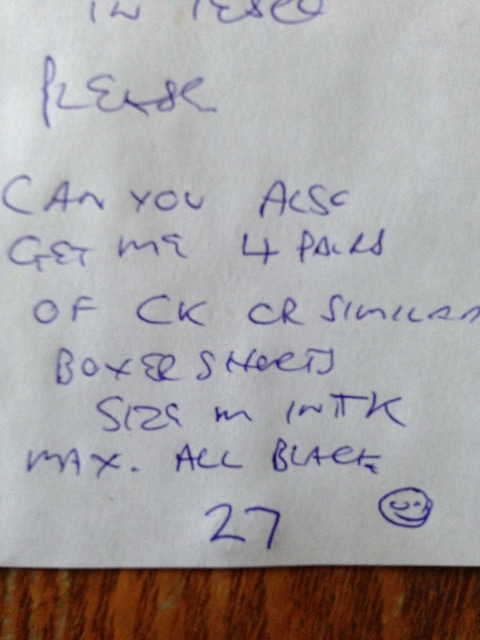 IN TESCO
PLEASE
CAN YOU ALSO
GET ME 4 PAIRS
OF CK OR SIMILAR
BOXER SHORTS
SIZE M IN TK
MAX. ALL BLACK
27